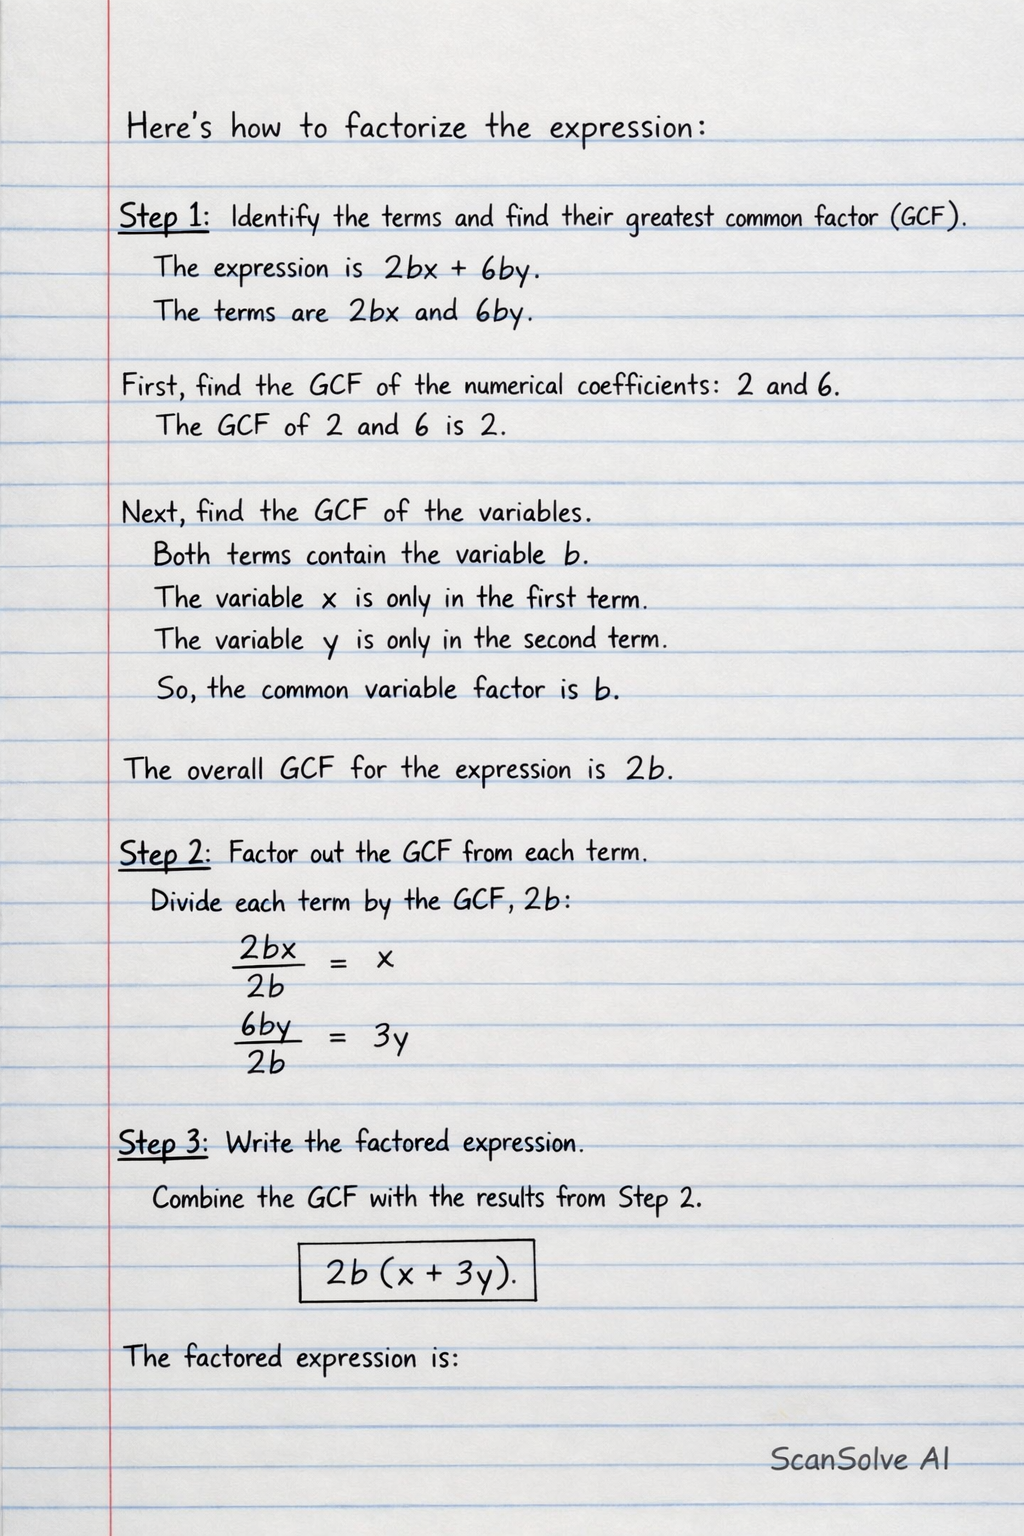 Here's how to factorize the expression:
Step 1: Identify the terms and find their greatest common factor (GCF).
The expression is 2bx + 6by.
The terms are 2bx and 6by.
First, find the GCF of the numerical coefficients: 2 and 6.
The GCF of 2 and 6 is 2.
Next, find the GCF of the variables.
Both terms contain the variable b.
The variable x is only in the first term.
The variable y is only in the second term.
So, the common variable factor is b.
The overall GCF for the expression is 2b.
Step 2: Factor out the GCF from each term.
Divide each term by the GCF, 2b:
2bx/2b = x
6by/2b = 3y
Step 3: Write the factored expression.
Combine the GCF with the results from Step 2.
2b (x + 3y).
The factored expression is:
ScanSolve AI